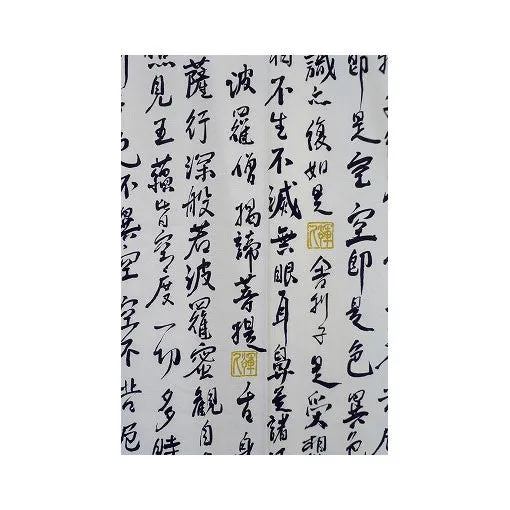 即是空空即是色異色
識亦復如是舍利子是受想
相不生不滅無眼耳鼻是諸
波羅僧揭諦菩提舌身
薩行深般若波羅蜜觀自
照見五蘊皆空度一切多時
色不異空空不皆色